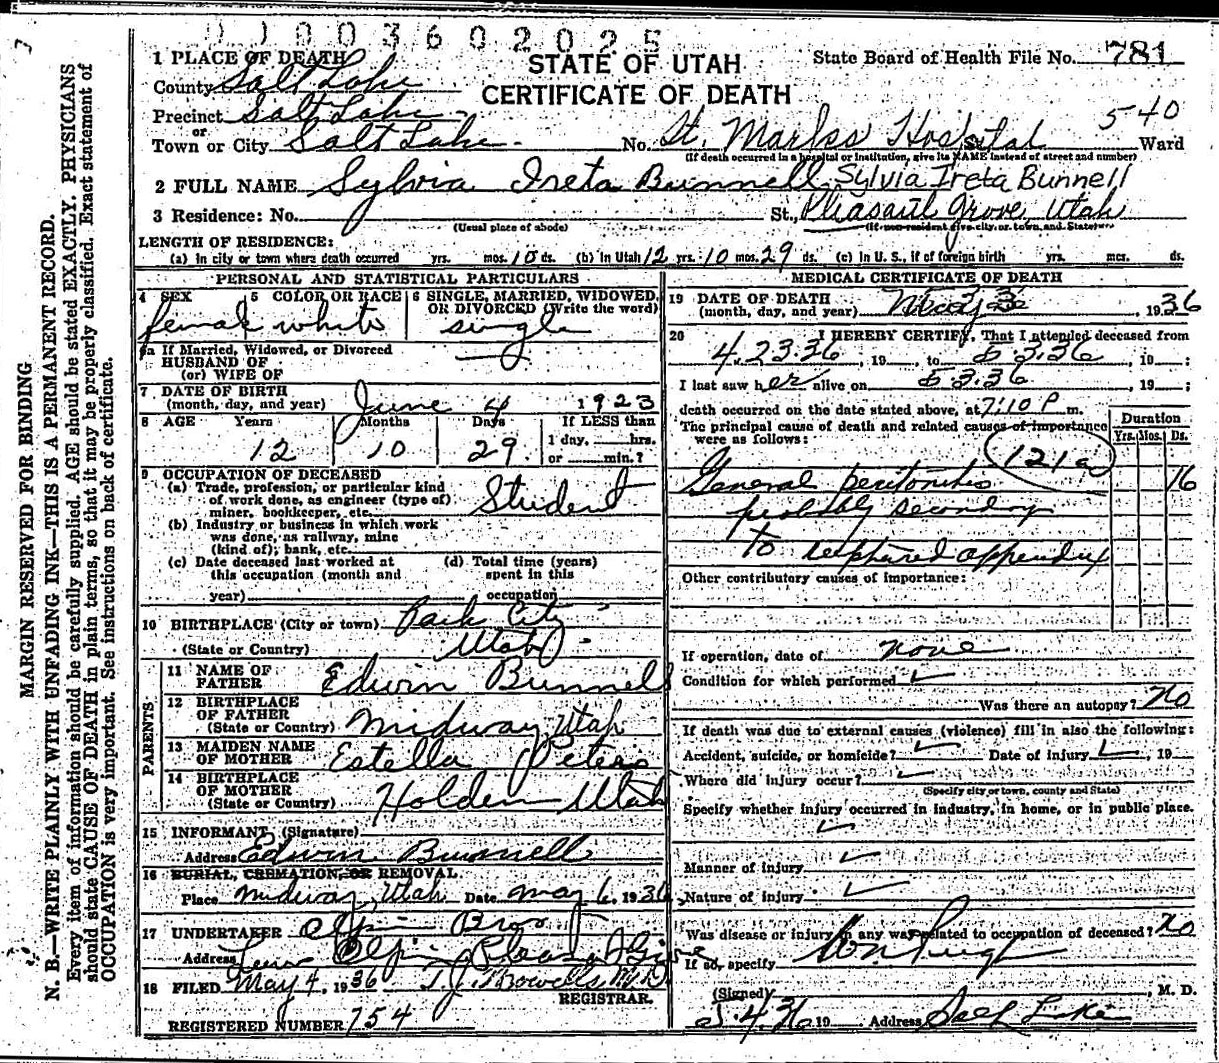 0 0 0 3 6 0 2 0 2 5
MARGIN RESERVED FOR BINDING
N. B.—WRITE PLAINLY WITH UNFADING INK—THIS IS A PERMANENT RECORD.
Every item of information should be carefully supplied. AGE should be stated EXACTLY. PHYSICIANS
should state CAUSE OF DEATH in plain terms, so that it may be properly classified. Exact statement of
OCCUPATION is very important. See instructions on back of certificate.
STATE OF UTAH
CERTIFICATE OF DEATH
State Board of Health File No. 781
1 PLACE OF DEATH
County Salt Lake
Precinct Salt Lake
or
Town or City Salt Lake No. St. Marks Hospital St. 540 Ward
(If death occurred in a hospital or institution, give its NAME instead of street and number)
2 FULL NAME Sylvia Ireta Bunnell Sylvia Ireta Bunnell
3 Residence: No. St., Pleasant Grove, Utah
(Usual place of abode) (If non-resident give city or town and State)
LENGTH OF RESIDENCE:
(a) In city or town where death occurred yrs. mos. 10 ds. (b) In Utah 12 yrs. 10 mos. 29 ds. (c) In U. S., if of foreign birth yrs. mos. ds.
PERSONAL AND STATISTICAL PARTICULARS
4 SEX female
5 COLOR OR RACE white
6 SINGLE, MARRIED, WIDOWED, OR DIVORCED (Write the word) single
6a If Married, Widowed, or Divorced
HUSBAND OF
(or) WIFE OF
7 DATE OF BIRTH
(month, day, and year) June 4 1923
8 AGE Years Months Days If LESS than
12 10 29 1 day, hrs.
or min.?
9 OCCUPATION OF DECEASED
(a) Trade, profession, or particular kind
of work done, as engineer (type of)
miner, bookkeeper, etc. Student
(b) Industry or business in which work
was done, as railway, mine
(kind of); bank, etc.
(c) Date deceased last worked at
this occupation (month and
year)
(d) Total time (years)
spent in this
occupation
10 BIRTHPLACE (City or town) Park City
(State or Country) Utah
PARENTS
11 NAME OF
FATHER Edwin Bunnell
12 BIRTHPLACE
OF FATHER
(State or Country) Midway, Utah
13 MAIDEN NAME
OF MOTHER Estella Peters
14 BIRTHPLACE
OF MOTHER
(State or Country) Holden Utah
15 INFORMANT (Signature)
Address Edwin Bunnell
16 BURIAL, CREMATION, OR REMOVAL
Place Midway, Utah Date May 6, 1936
17 UNDERTAKER Olpin Bros
Address Olpin Pleasant Grove
18 FILED May 4, 1936
REGISTRAR.
REGISTERED NUMBER 754
MEDICAL CERTIFICATE OF DEATH
19 DATE OF DEATH
(month, day, and year) May 3, 1936
20 I HEREBY CERTIFY, That I attended deceased from
4.23.36, 19 to 5 3.36, 19 ;
I last saw her alive on 5 3.36, 19 ;
death occurred on the date stated above, at 7:10 P m.
The principal cause of death and related causes of importance
were as follows:
Duration
Yrs. Mos. Ds.
121a
General peritonitis 16
probably secondary
to ruptured appendix
Other contributory causes of importance:
If operation, date of none
Condition for which performed
Was there an autopsy? No
If death was due to external causes (violence) fill in also the following:
Accident, suicide, or homicide? Date of injury , 19
Where did injury occur?
(Specify city or town, county and State)
Specify whether injury occurred in industry, in home, or in public place.
Manner of injury
Nature of injury
Was disease or injury in any way related to occupation of deceased? No
If so, specify
(Signed) , M. D.
5.4.36 19 Address Salt Lake